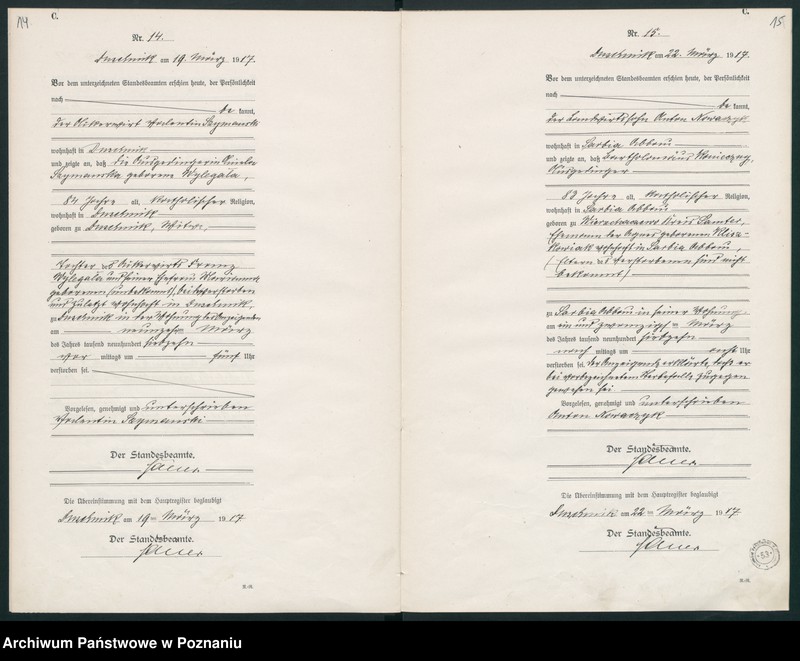 14
C.
Nr. 14.
Duschnik am 19. März 1917.
Vor dem unterzeichneten Standesbeamten erschien heute, der Persönlichkeit
nach
be kannt,
der Ackerwirt Valentin Szymanski
wohnhaft in Duschnik
und zeigte an, daß die Ausgedingerin
Szymanska geborene Wylegala,
84 Jahre alt, katholischer Religion,
wohnhaft in Duschnik
geboren zu Duschnik, Witwe,
Tochter des Ackerwirts Franz
Wylegala und seiner Ehefrau
geborenen (unbekannt), beide verstorben
und zuletzt wohnhaft in Duschnik,
zu Duschnik in der Wohnung des Anzeigenden
am neunzehn März
des Jahres tausend neunhundert siebzehn
vor mittags um fünf Uhr
verstorben sei.
Vorgelesen, genehmigt und unterschrieben
Valentin Szymanski
Der Standesbeamte.
Die Übereinstimmung mit dem Hauptregister beglaubigt
Duschnik am 19 März 1917
Der Standesbeamte.
15
C.
Nr. 15.
Duschnik am 22. März 1917.
Vor dem unterzeichneten Standesbeamten erschien heute, der Persönlichkeit
nach
be kannt,
der Landwirtssohn Anton Kowaczyk
wohnhaft in Sarbia Abbau
und zeigte an, daß Bartholomäus
Ausgedinger
83 Jahre alt, katholischer Religion,
wohnhaft in Sarbia Abbau
geboren zu Kreis Samter,
Ehemann der Agnes geborenen
wohnhaft in Sarbia Abbau,
(Eltern des Verstorbenen sind nicht
bekannt)
zu Sarbia Abbau in seiner Wohnung
am ein und zwanzigsten März
des Jahres tausend neunhundert siebzehn
nach mittags um acht Uhr
verstorben sei. Der Anzeigende erklärte, daß er
bei vorbezeichnetem Sterbefalle zugegen
gewesen sei
Vorgelesen, genehmigt und unterschrieben
Anton Kowaczyk
Der Standesbeamte.
Die Übereinstimmung mit dem Hauptregister beglaubigt
Duschnik am 22 März 1917
Der Standesbeamte.
53
Archiwum Państwowe w Poznaniu